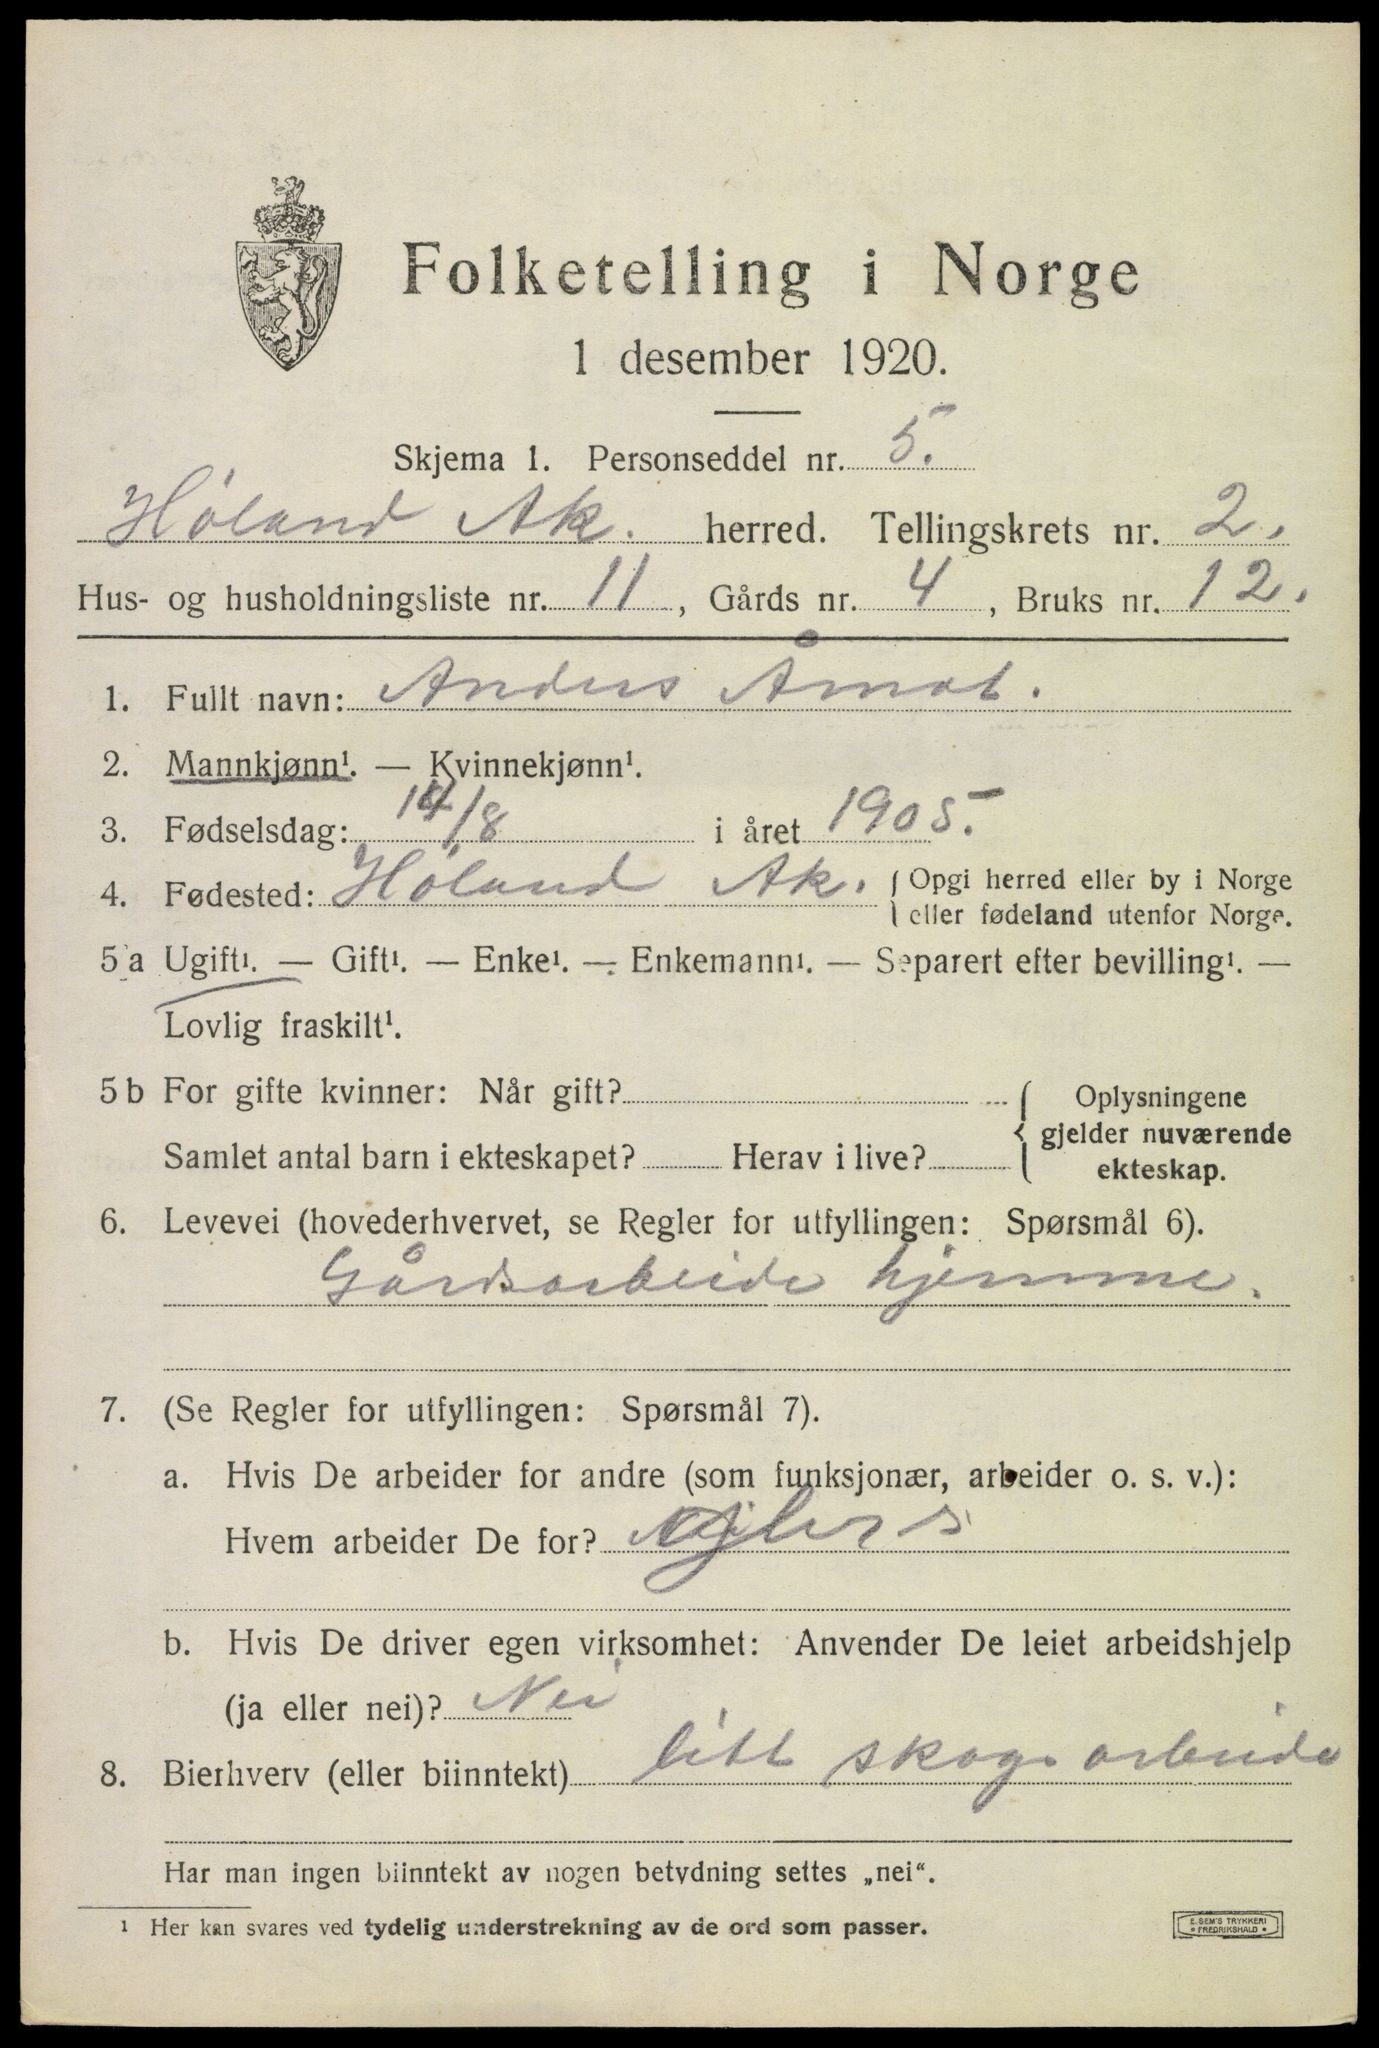 Folketelling i Norge
1 desember 1920.
Skjema 1. Personseddel nr. 5.
Høland Ak. herred. Tellingskrets nr. 2.
Hus- og husholdningsliste nr. 11, Gårds nr. 4, Bruks nr. 12.
1. Fullt navn: Anders Åmot.
2. Mannkjønn¹. — Kvinnekjønn¹.
3. Fødselsdag: 14/8 i året 1905.
4. Fødested: Høland Ak. { Opgi herred eller by i Norge
eller fødeland utenfor Norge.
5 a Ugift¹. — Gift¹. — Enke¹. — Enkemann¹. — Separert efter bevilling¹. —
Lovlig fraskilt¹.
5 b For gifte kvinner: Når gift? { Oplysningene
gjelder nuværende
Samlet antal barn i ekteskapet? Herav i live?
ekteskap.
6. Levevei (hovederhvervet, se Regler for utfyllingen: Spørsmål 6).
Gårdsarbeide hjemme.
7. (Se Regler for utfyllingen: Spørsmål 7).
a. Hvis De arbeider for andre (som funksjonær, arbeider o. s. v.):
Hvem arbeider De for?
b. Hvis De driver egen virksomhet: Anvender De leiet arbeidshjelp
(ja eller nei)? Nei
8. Bierhverv (eller biinntekt) litt skogsarbeide
Har man ingen biinntekt av nogen betydning settes „nei“.
¹ Her kan svares ved tydelig understrekning av de ord som passer.
E. SEM'S TRYKKERI
• FREDRIKSHALD •